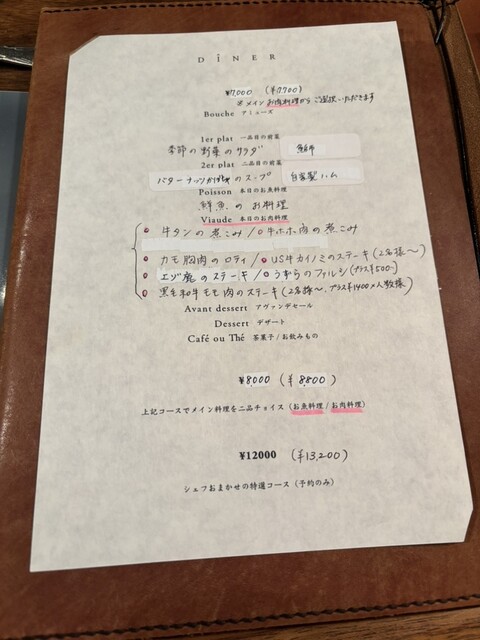 DÎNER
¥7,000 (¥7700)
※メインお肉料理からご選択いただきます
Bouche アミューズ
1er plat 一品目の前菜
季節の野菜のサラダ 鮮
2er plat 二品目の前菜
バターナッツかぼちゃのスープ 自家製ハム
Poisson 本日のお魚料理
鮮魚のお料理
Viaude 本日のお肉料理
牛タンの煮こみ/牛ホホ肉の煮こみ
カモ胸肉のロティ/US牛カイノミのステーキ(2名様〜)
エゾ鹿のステーキ/うずらのファルシ(プラス¥500-)
黒毛和牛モモ肉のステーキ(2名様〜、プラス¥1400×人数様)
Avant dessert アヴァンデセール
Dessert デザート
Café ou Thé 茶菓子/お飲みもの
¥8000 (¥8800)
上記コースでメイン料理を二品チョイス(お魚料理/お肉料理)
¥12000 (¥13,200)
シェフおまかせの特選コース(予約のみ)